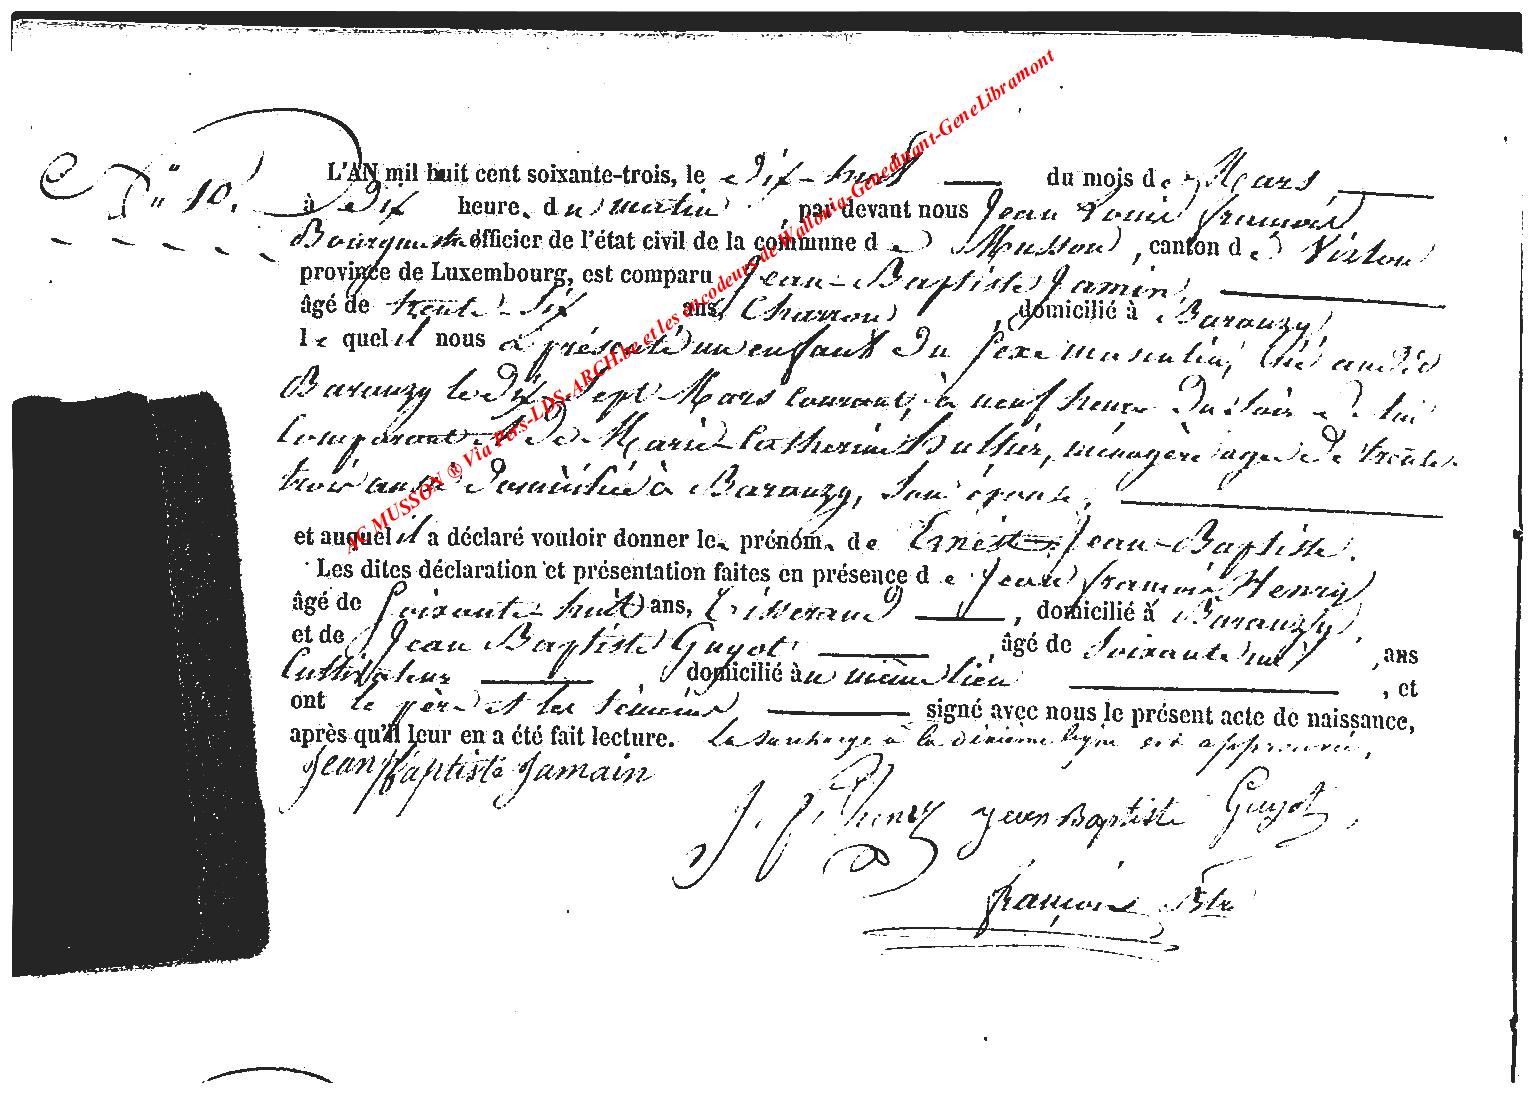 N° 10.
L'AN mil huit cent soixante-trois, le Dix-huit du mois de Mars
à Dix heure. du matin, par devant nous Jean Louis françois
Bourguet officier de l'état civil de la commune de Musson, canton de Virton
province de Luxembourg, est comparu Jean-Baptiste Jamin,
âgé de trente-Six ans, Charron, domicilié à Baranzy
le quel il nous a présenté un enfant du sexe masculin, né audit
Baranzy le dix-sept Mars courant, à neuf heure du soir de lui
comparant et de Marie-Catherine, ménagère agée de trente-
trois ans domiciliée à Baranzy, son épouse,
et auquel il a déclaré vouloir donner le. prénom. de Ernest Jean-Baptiste.
Les dites déclaration et présentation faites en présence de Jean françois Henry
âgé de soixante-huit ans, Tisserand, domicilié à Baranzy,
et de Jean Baptiste Guyot, âgé de soixante neuf, ans
Cultivateur domicilié au même lieu, et
ont le père et les témoins signé avec nous le présent acte de naissance,
après qu'il leur en a été fait lecture. la surcharge à la dixième ligne est approuvée,
Jean Baptiste Jamain
J. f. henry Jean Baptiste Guyot
françois
AC MUSSON ® Via Pers-LDS-ARCH.be et les encodeurs de Wallonia-Genedinant-GeneLibramont